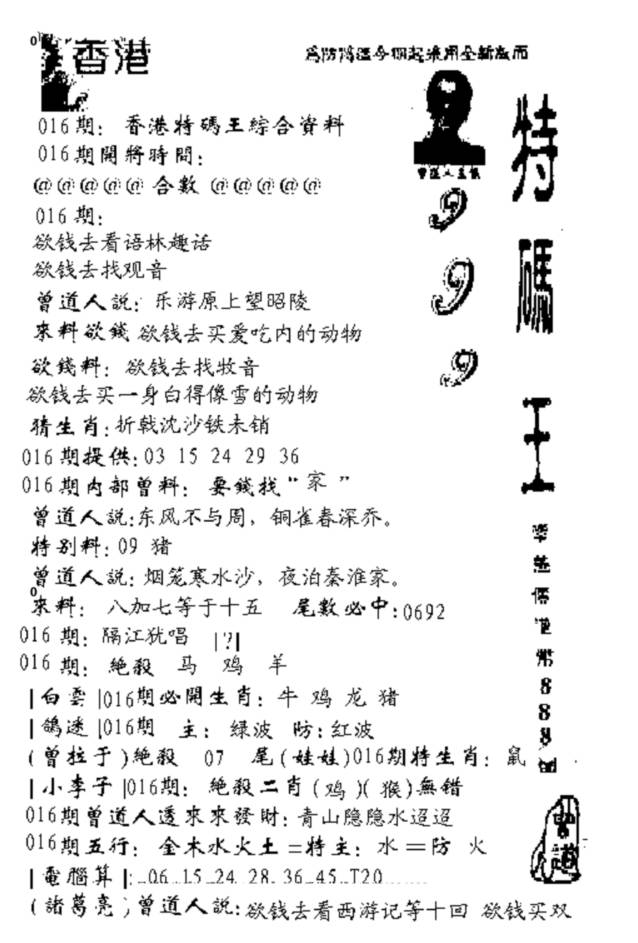 香港
為防搗亂今期起采用全新版面
016期: 香港特碼王綜合資料
016期開將時間:
@@@@@合數@@@@@
016期:
欲钱去看语林趣话
欲钱去找观音
曾道人説: 乐游原上望昭陵
來料欲錢 欲钱去买爱吃内的动物
欲錢料: 欲钱去找牧音
欲钱去买一身白得像雪的动物
猜生肖:折戟沈沙铁未销
016期提供:03 15 24 29 36
016期内部曾料: 要錢找“家”
曾道人説:东风不与周，铜雀春深乔。
特别料:09 猪
曾道人説: 烟笼寒水沙，夜泊秦淮家。
來料: 八加七等于十五 尾數必中:0692
016期: 隔江犹唱 |?|
016期: 絶殺 马 鸡 羊
|白雲|016期必開生肖: 牛 鸡 龙 猪
|鴿迷|016期 主: 绿波 防:红波
(曾拉于)絶殺 07 尾(娃娃)016期特生肖: 鼠
|小李子|016期: 絶殺二肖(鸡)(猴)無错
016期曾道人透來來發財:青山隐隐水迢迢
016期五行: 金木水火土=特主: 水=防 火
|電腦算|:..06..15..24. 28. 36..45..T20........
(諸葛亮)曾道人説:欲钱去看西游记等十回 欲钱买双
特碼王
999
888
曾道